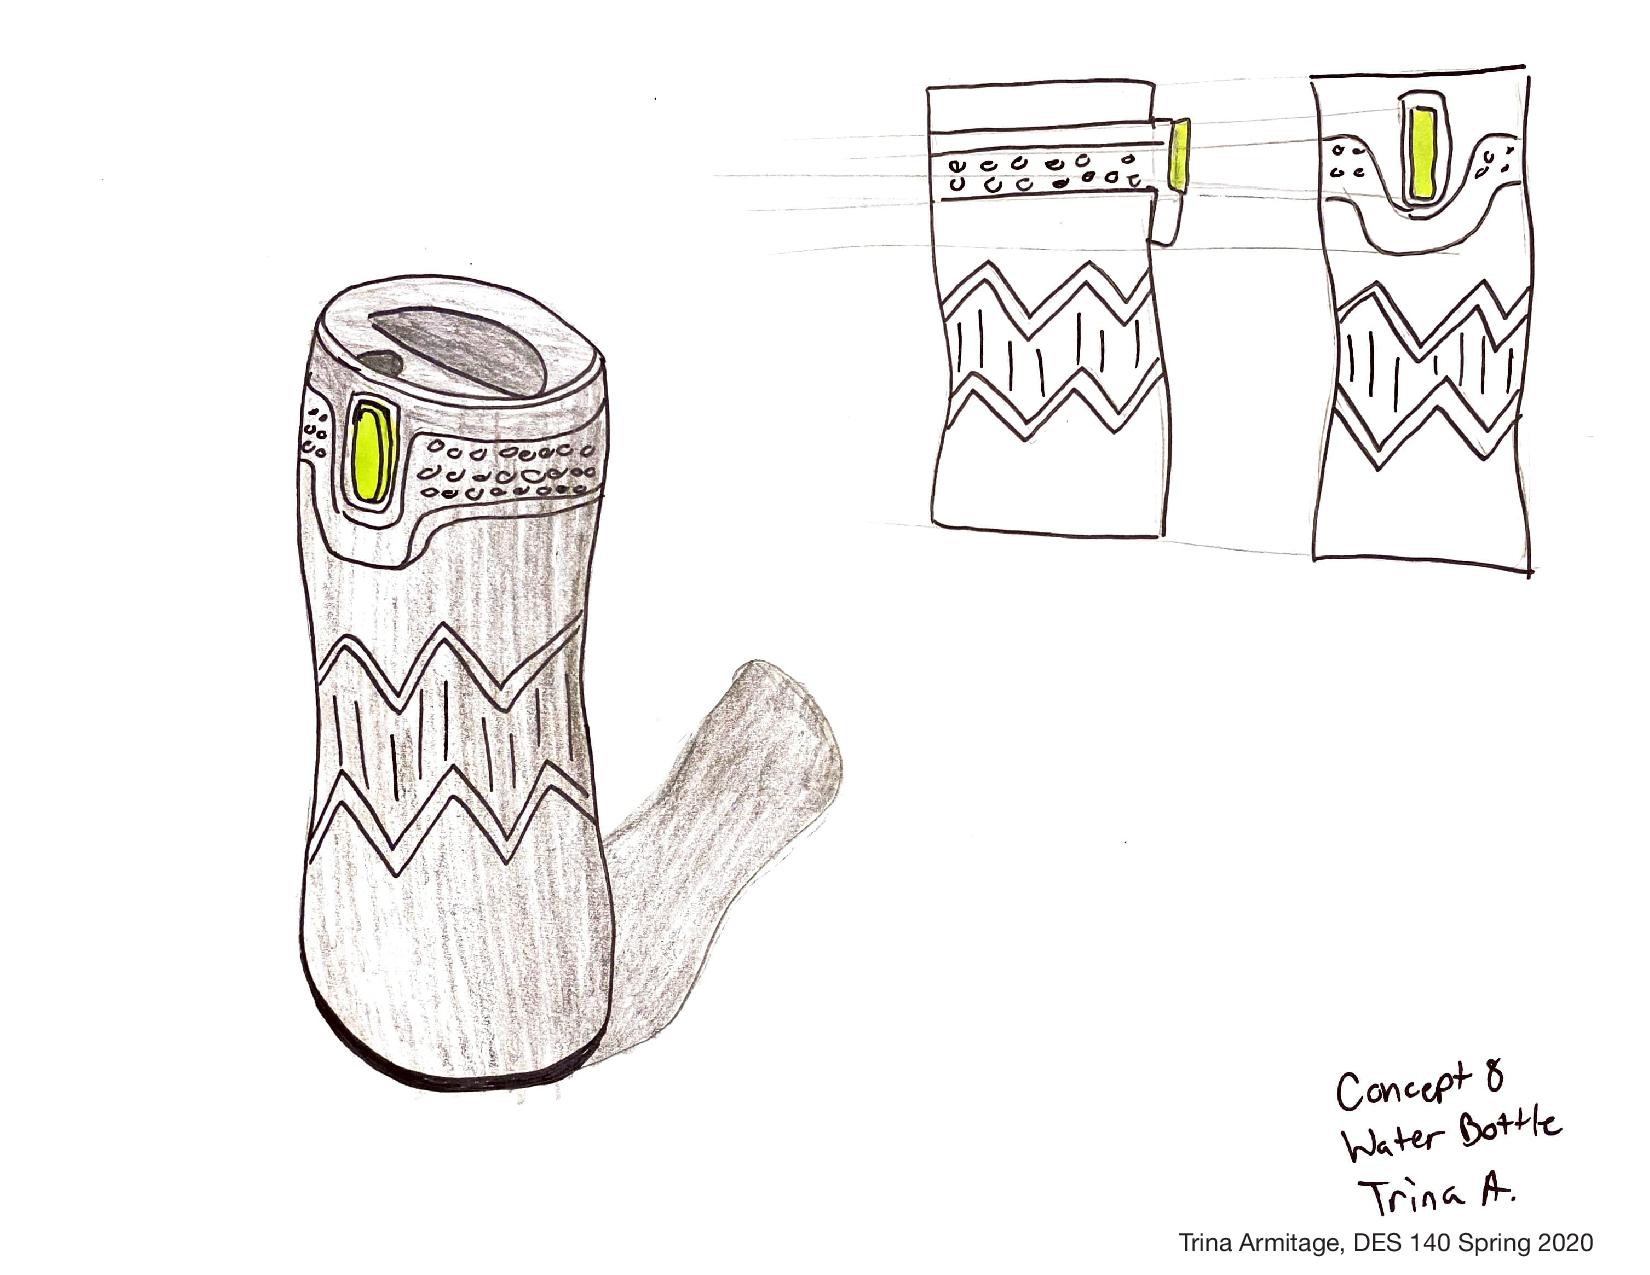 Concept 8
Water Bottle
Trina A.
Trina Armitage, DES 140 Spring 2020